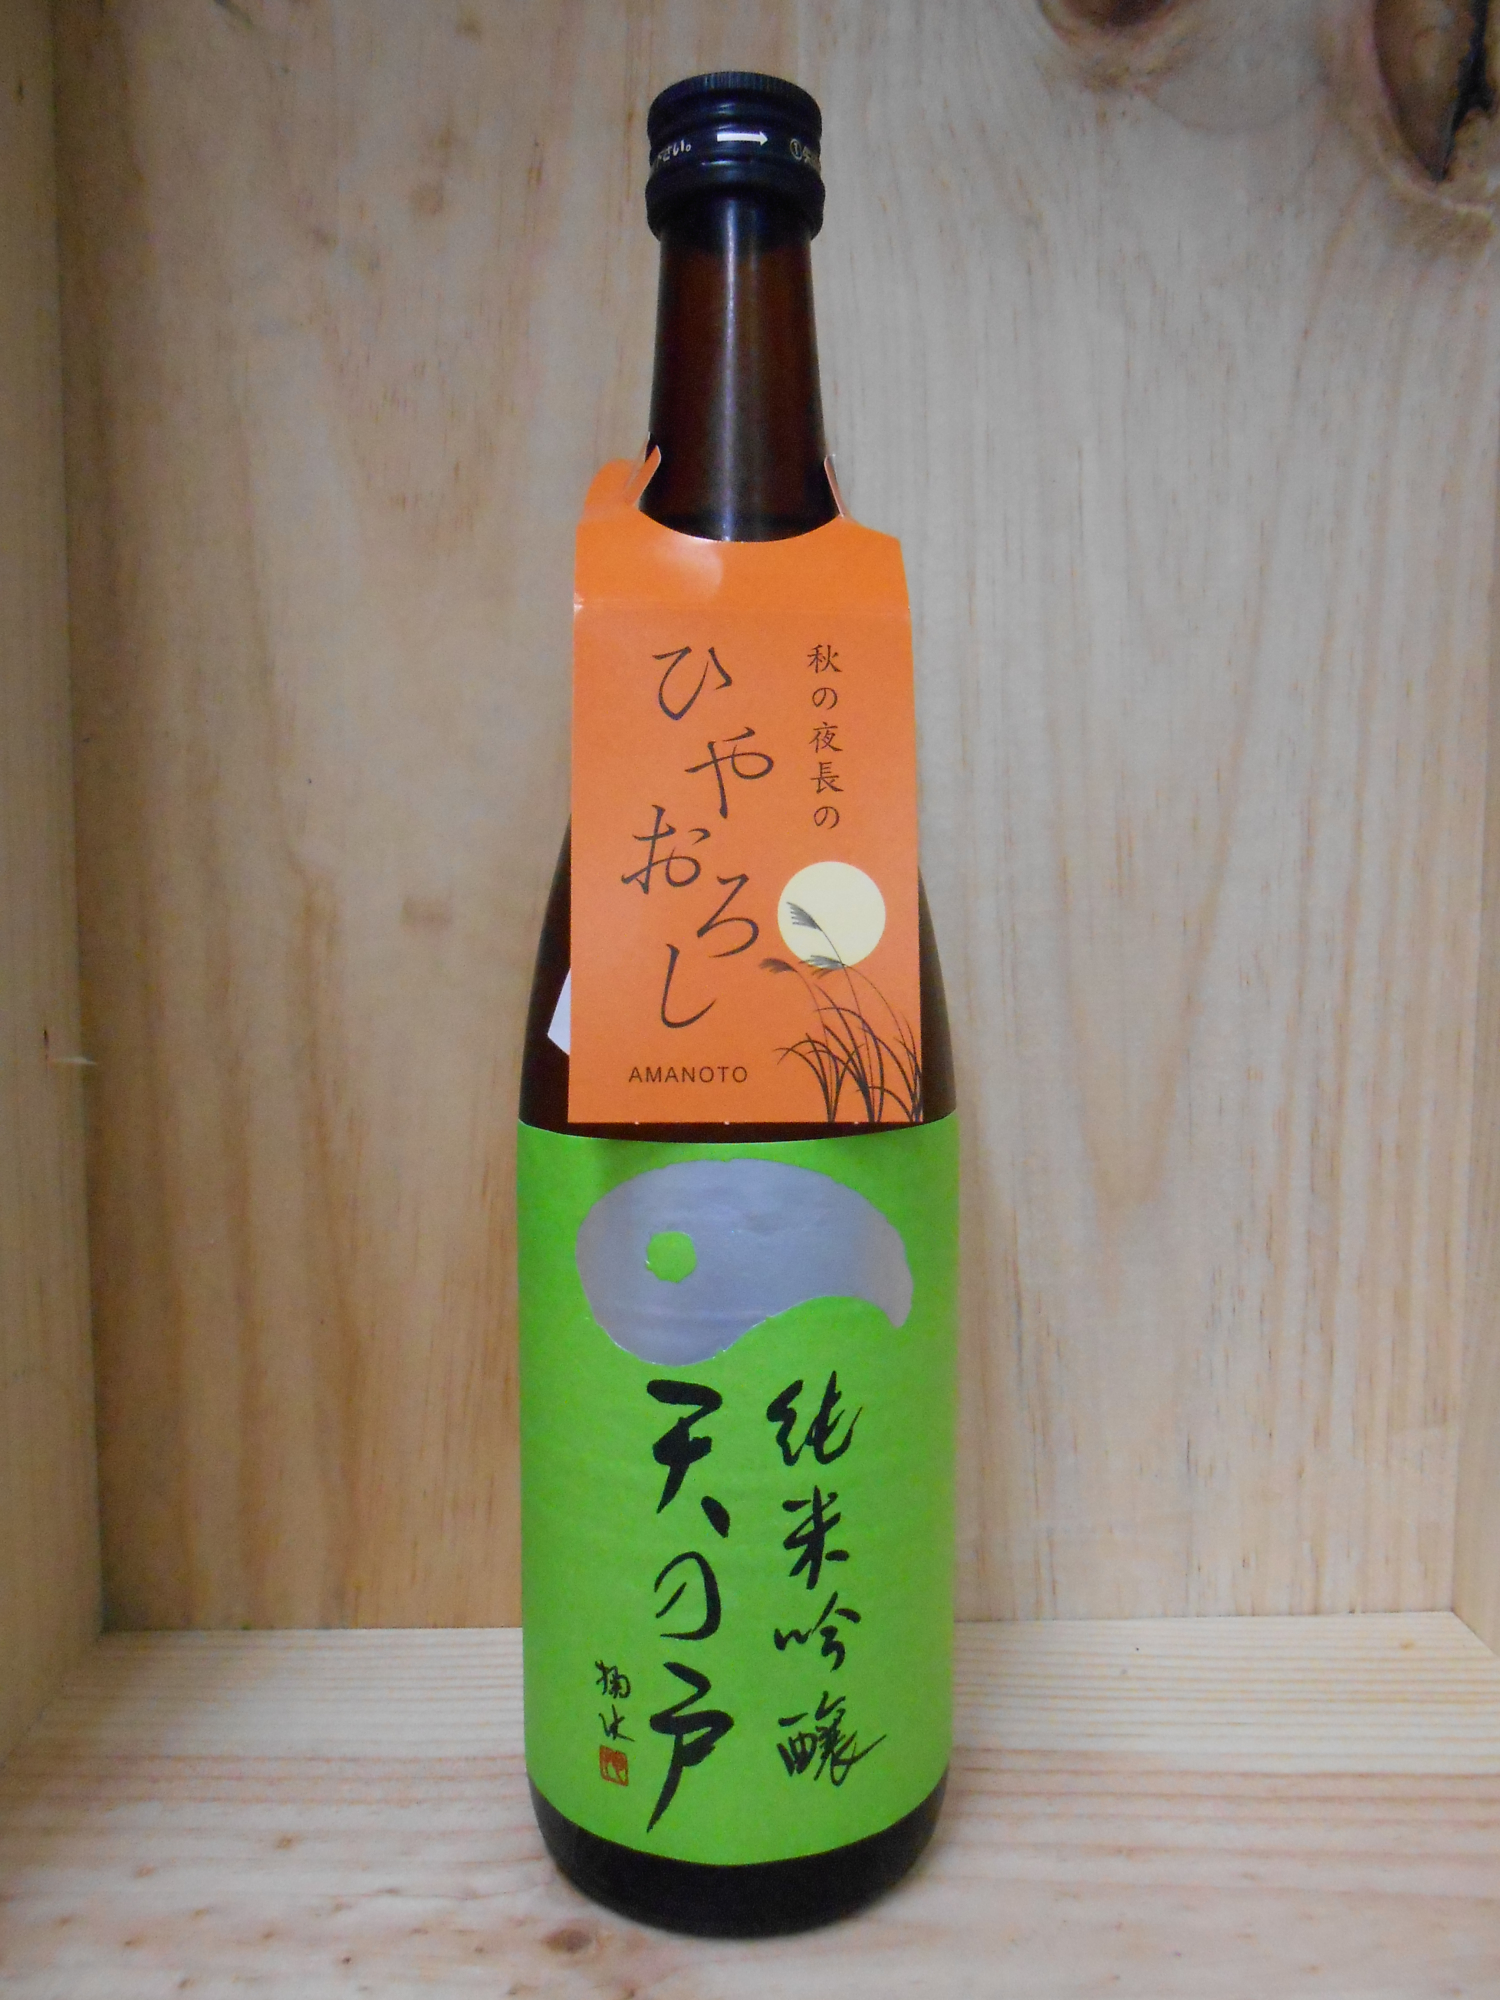 さい。
①
秋の夜長の
ひやおろし
AMANOTO
純米吟醸
天の戸